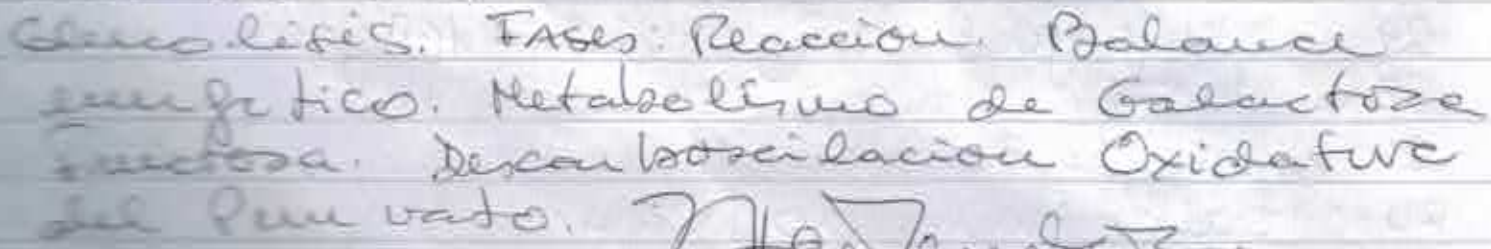 Glucolisis. Fases: Reaccion. Balance
energetico. Metabolismo de Galactosa
Fructosa. Descarboxilacion Oxidativa
del Piruvato.